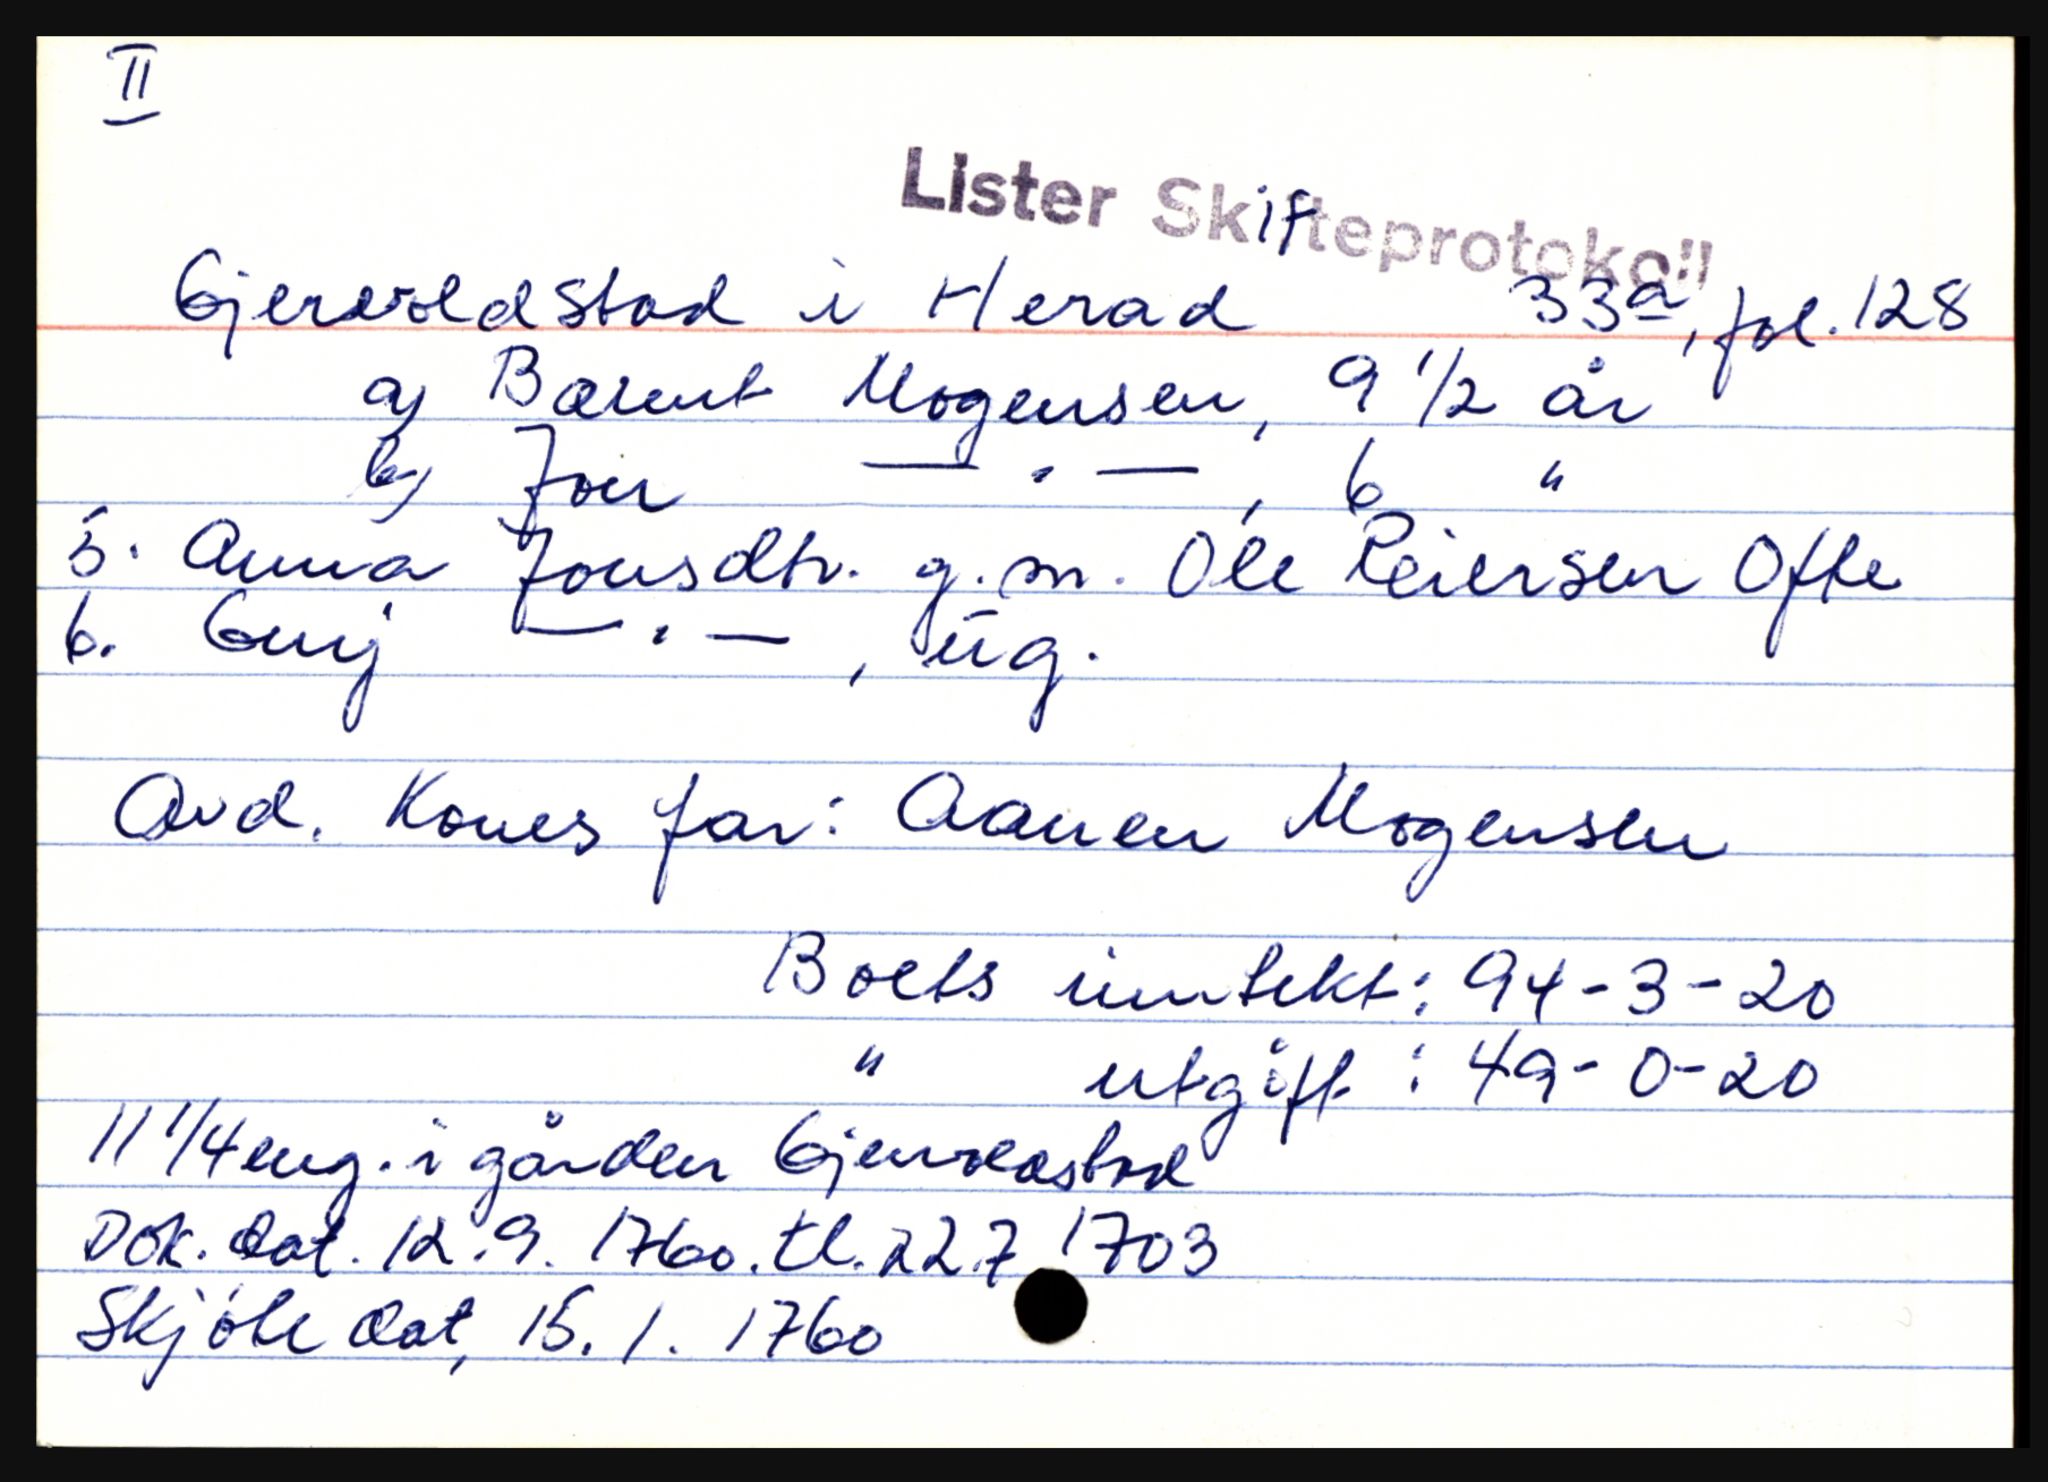 II
Lister Skifteprotokoll
Gjervoldstad i Herad 33a, fol. 128
a) Bærent Mogensen, 9 1/2 år
b) Jon — " —, 6 "
5. Anna Jonsdtr. g.m. Ole Peiersen Ofte
6. Gunj — " —, ug.
Avd. Kones far: Aanen Mogensen
Boets inntekt: 94-3-20
" utgift: 49-0-20
11 1/4 eng. i gården Gjervoldstad
Dok. dat. 12.9. 1760. tl. 22.7 1703
Skjøte dat, 15.1. 1760